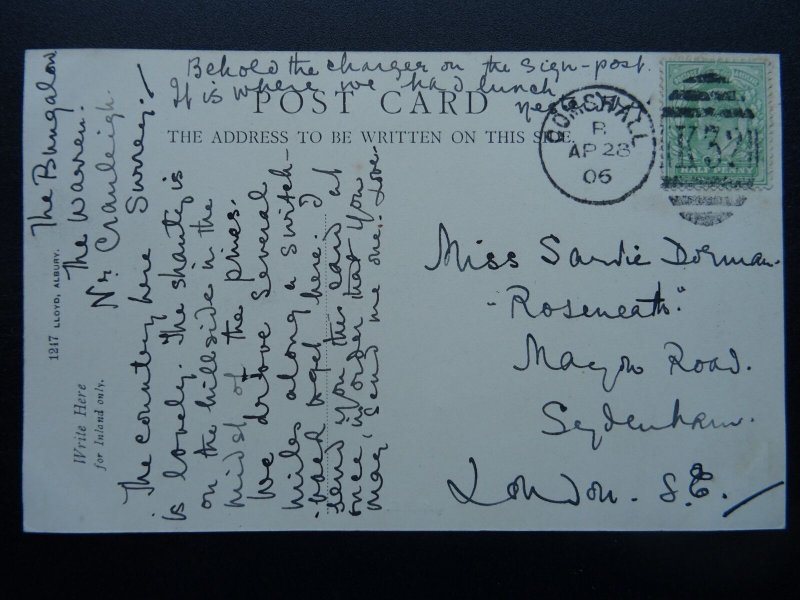 Behold the charger on the sign-post.
It is where we had lunch
POST CARD
THE ADDRESS TO BE WRITTEN ON THIS SIDE.
GOMSHALL
B
AP 28
06
K32
HALF PENNY
The Bungalow
The Warren.
Nr. Cranleigh.
Surrey.
The country here
is lovely. The shanty is
on the hillside in the
midst of the pines.
We drove several
miles along a switch-
-back to get here. I
send you this card at
once, in order that you
may send me one. Love
1247 LLOYD, ALBURY.
Write Here
for Inland only.
Miss Sandie Dorman.
"Roseneath"
Mayow Road.
Sydenham.
London. S.E.